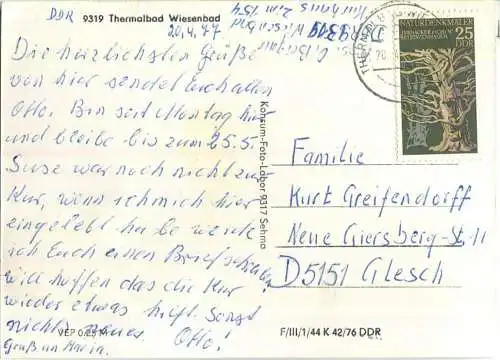 DDR 9319 Thermalbad Wiesenbad
20.4.77
Kurhaus Zim 154
DDR 9309
Die herzlichsten Grüße
von hier sendet Euch allen
Otto. Bin seit Montag hier
und bleibe bis zum 25.5.
Suse war noch nicht zur
Kur, wenn ich mich hier
eingelebt habe werde
ich Euch einen Brief schreiben
will hoffen das die Kur
wieder etwas hilft. Sonst
nichts neues. Otto!
Gruß an Maria.
VEP 0,25 M
Konsum-Foto-Labor 9317 Sehma
THERMALBAD
NATURDENKMALER
25
DDR
Familie
Kurt Greifendorff
Neue Giersberg-St. 11
D5151 Glesch
F/III/1/44 K 42/76 DDR